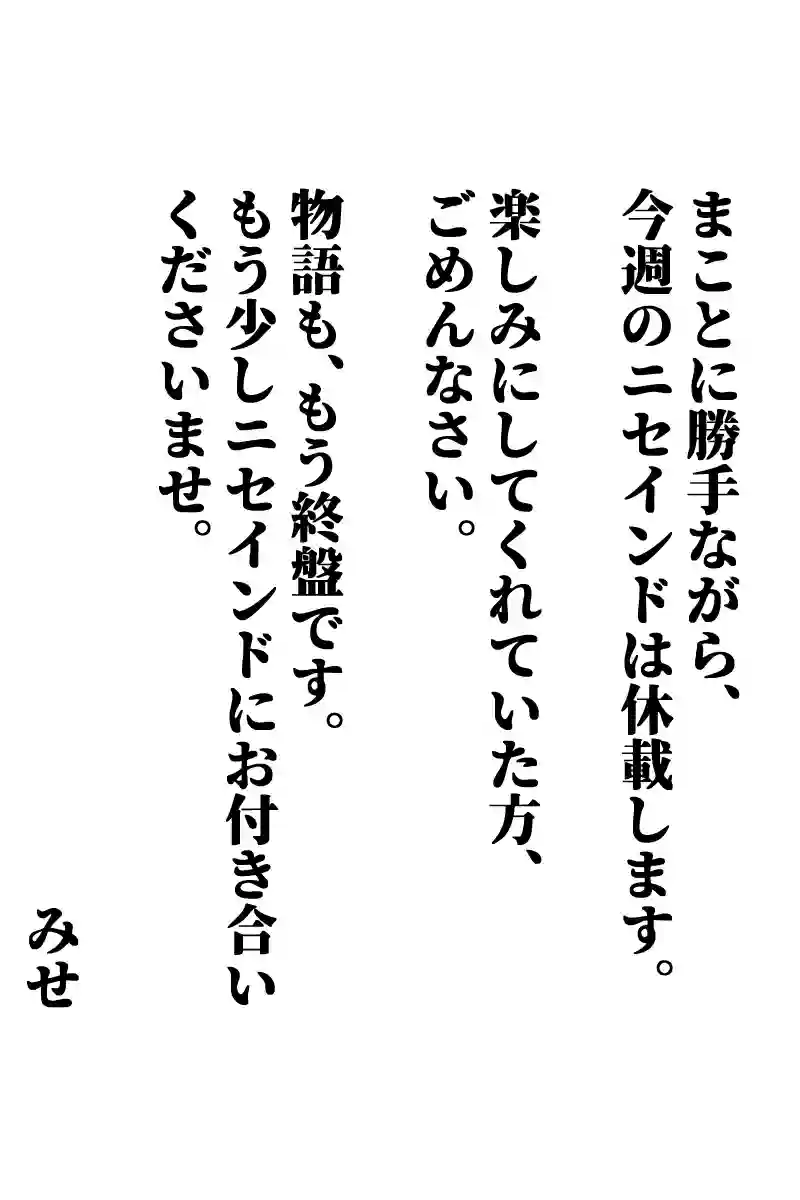 まことに勝手ながら、
今週のニセインドは休載します。
楽しみにしてくれていた方、
ごめんなさい。
物語も、もう終盤です。
もう少しニセインドにお付き合い
くださいませ。
みせ